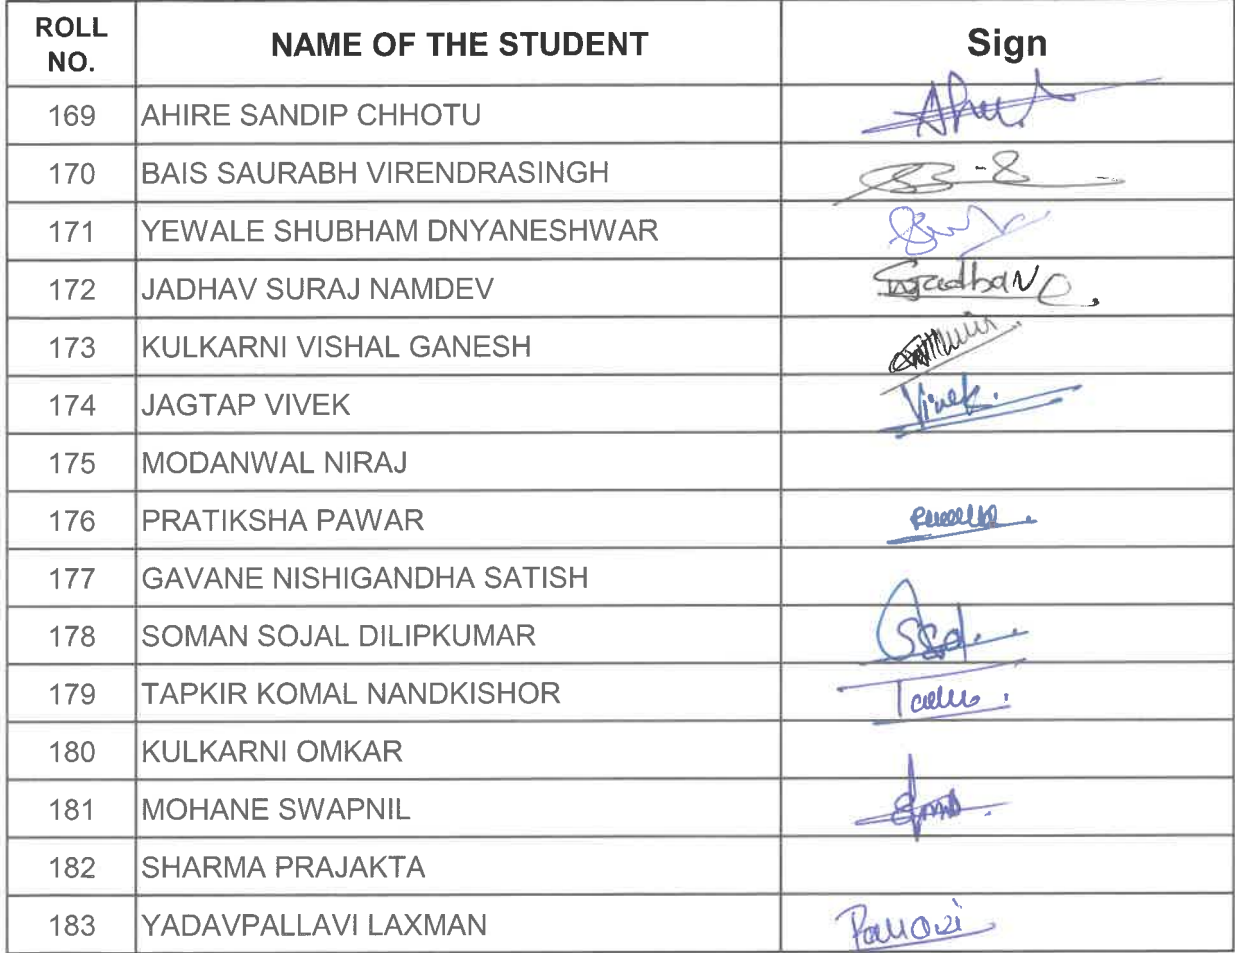 ROLL NO. NAME OF THE STUDENT Sign
169 AHIRE SANDIP CHHOTU
170 BAIS SAURABH VIRENDRASINGH
171 YEWALE SHUBHAM DNYANESHWAR
172 JADHAV SURAJ NAMDEV
173 KULKARNI VISHAL GANESH
174 JAGTAP VIVEK Vivek.
175 MODANWAL NIRAJ
176 PRATIKSHA PAWAR
177 GAVANE NISHIGANDHA SATISH
178 SOMAN SOJAL DILIPKUMAR
179 TAPKIR KOMAL NANDKISHOR
180 KULKARNI OMKAR
181 MOHANE SWAPNIL
182 SHARMA PRAJAKTA
183 YADAVPALLAVI LAXMAN